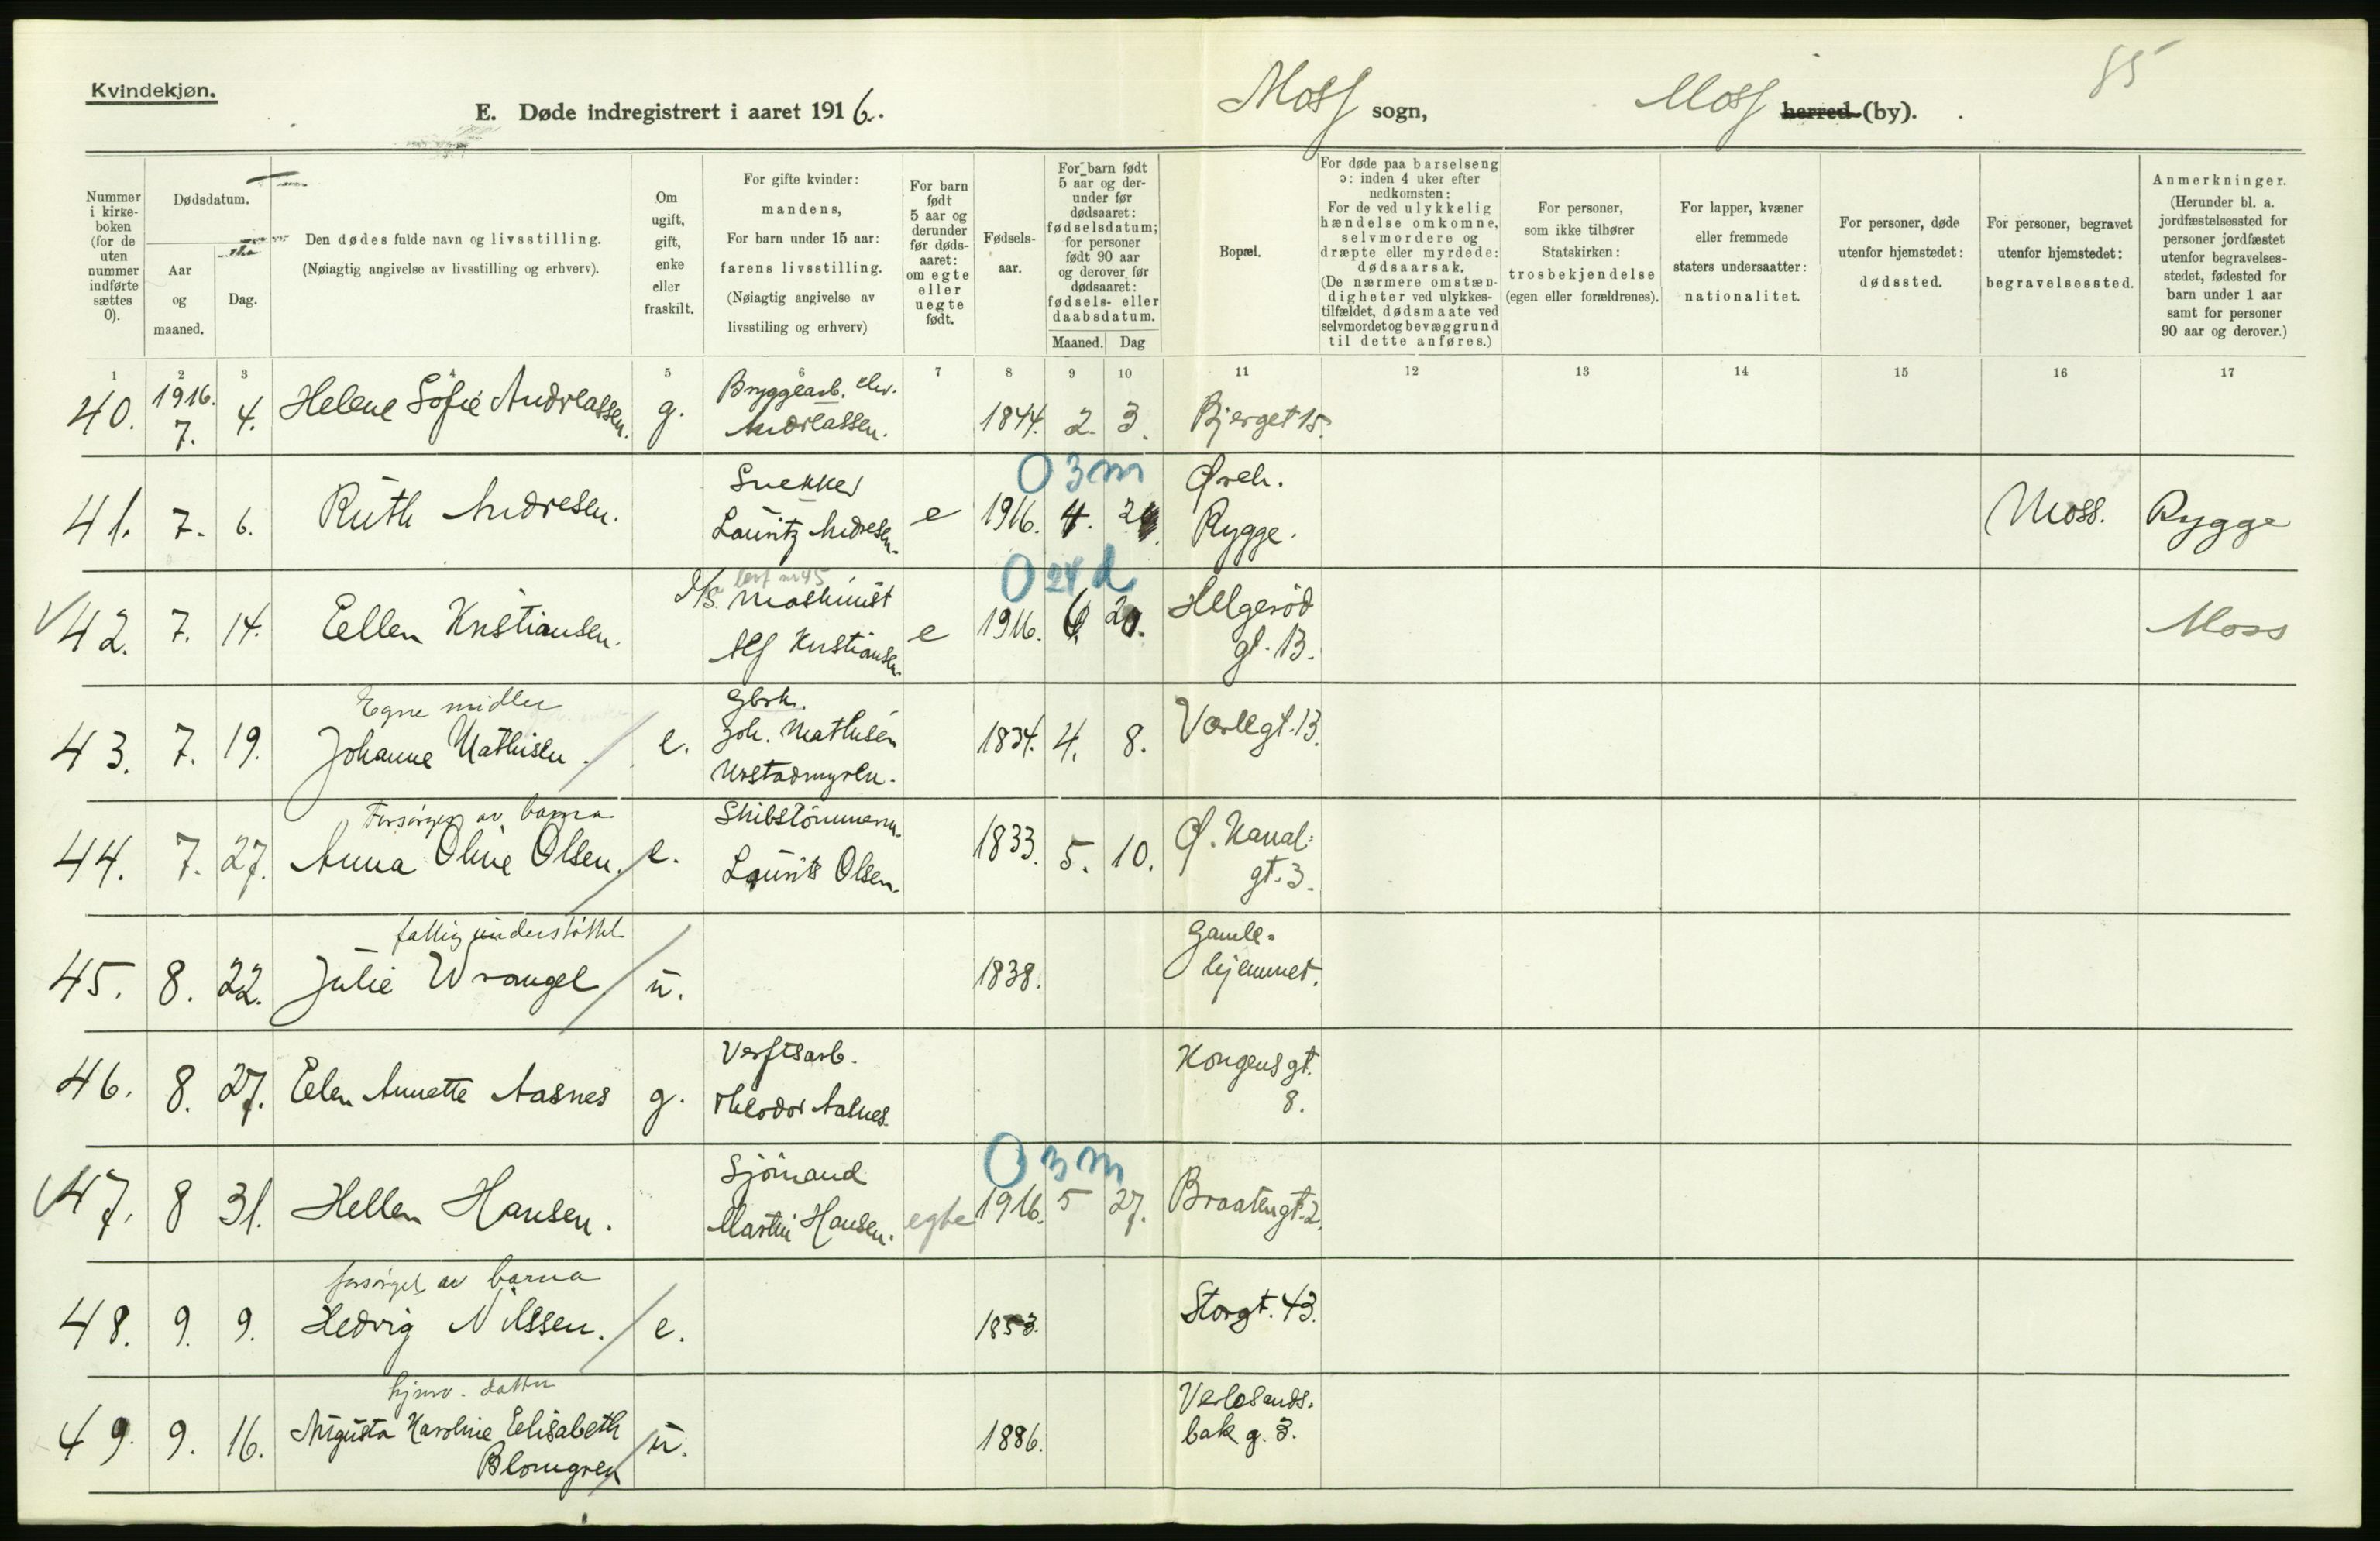 Kvindekjøn.
85
E. Døde indregistrert i aaret 1916.
Moss sogn,
Moss herred (by).
Nummer i kirke-boken (for de uten nummer indførte sættes 0).
Dødsdatum.
Aar og maaned.
Dag.
Den dødes fulde navn og livsstilling.
(Nøiagtig angivelse av livsstilling og erhverv).
Om ugift, gift, enke eller fraskilt.
For gifte kvinder: mandens,
For barn under 15 aar: farens livsstilling.
(Nøiagtig angivelse av livsstiling og erhverv)
For barn født 5 aar og derunder før døds-aaret: om egte eller uegte født.
Fødsels-aar.
For barn født 5 aar og der-under før dødsaaret: fødselsdatum; for personer født 90 aar og derover før dødsaaret: fødsels- eller daabsdatum.
Maaned. Dag
Bopæl.
For døde paa barselseng ɔ: inden 4 uker efter nedkomsten:
For de ved ulykkelig hændelse omkomne, selvmordere og dræpte eller myrdede: dødsaarsak.
(De nærmere omstæn-digheter ved ulykkes-tilfældet, dødsmaate ved selvmordet og bevæggrund til dette anføres.)
For personer, som ikke tilhører Statskirken: trosbekjendelse (egen eller forældrenes).
For lapper, kvæner eller fremmede staters undersaatter: nationalitet.
For personer, døde utenfor hjemstedet: dødssted.
For personer, begravet utenfor hjemstedet: begravelsessted.
Anmerkninger.
(Herunder bl. a. jordfæstelsessted for personer jordfæstet utenfor begravelses-stedet, fødested for barn under 1 aar samt for personer 90 aar og derover.)
1 2 3 4 5 6 7 8 9 10 11 12 13 14 15 16 17
40. 1916. 7. 4. Helene Sofie Andreassen. g. Bryggearb. Chr. Andreassen. 1844. 2. 3. Bjerget 15.
O 3 m
41. 7. 6. Ruth Andresen. Snekker Lauritz Andresen. e 1916. 4. Øreh. Rygge. Moss. Rygge
O 24 d
42. 7. 14. Eellen Kristiansen. D/S. Maskinist Alf Kristiansen. e 1916. 6. 20. Helgerød gt. 13. Moss
Egne midler
43. 7. 19. Johanne Mathisen. e. Gbrk. Joh. Mathisen 1834. 4. 8. Værlegt. 13.
Forsørget av barna
44. 7. 27. Anna Oline Olsen. e. Skibstømmerm. Laurits Olsen. 1833. 5. 10. Ø. Kanal-gt. 3.
fattigunderstøttet
45. 8. 22. Julie Wrangel u. 1838. Gamle-hjemmet.
46. 8. 27. Eelen Annette Aasnes g. Verftsarb. Theodor Aasnes. Kongens gt. 8.
O 3 m
47. 8 31. Hellen Hansen. Sjømand Martin Hansen. egte 1916. 5 27. Braatengt. 2.
forsørget av barna
48. 9. 9. Hedvig Nilssen. e. 1853. Storgt. 43.
hjmv. datter
49. 9. 16. Augusta Karoline Eelisabeth Blomgren u. 1886. Verlesands. bak g. 3.